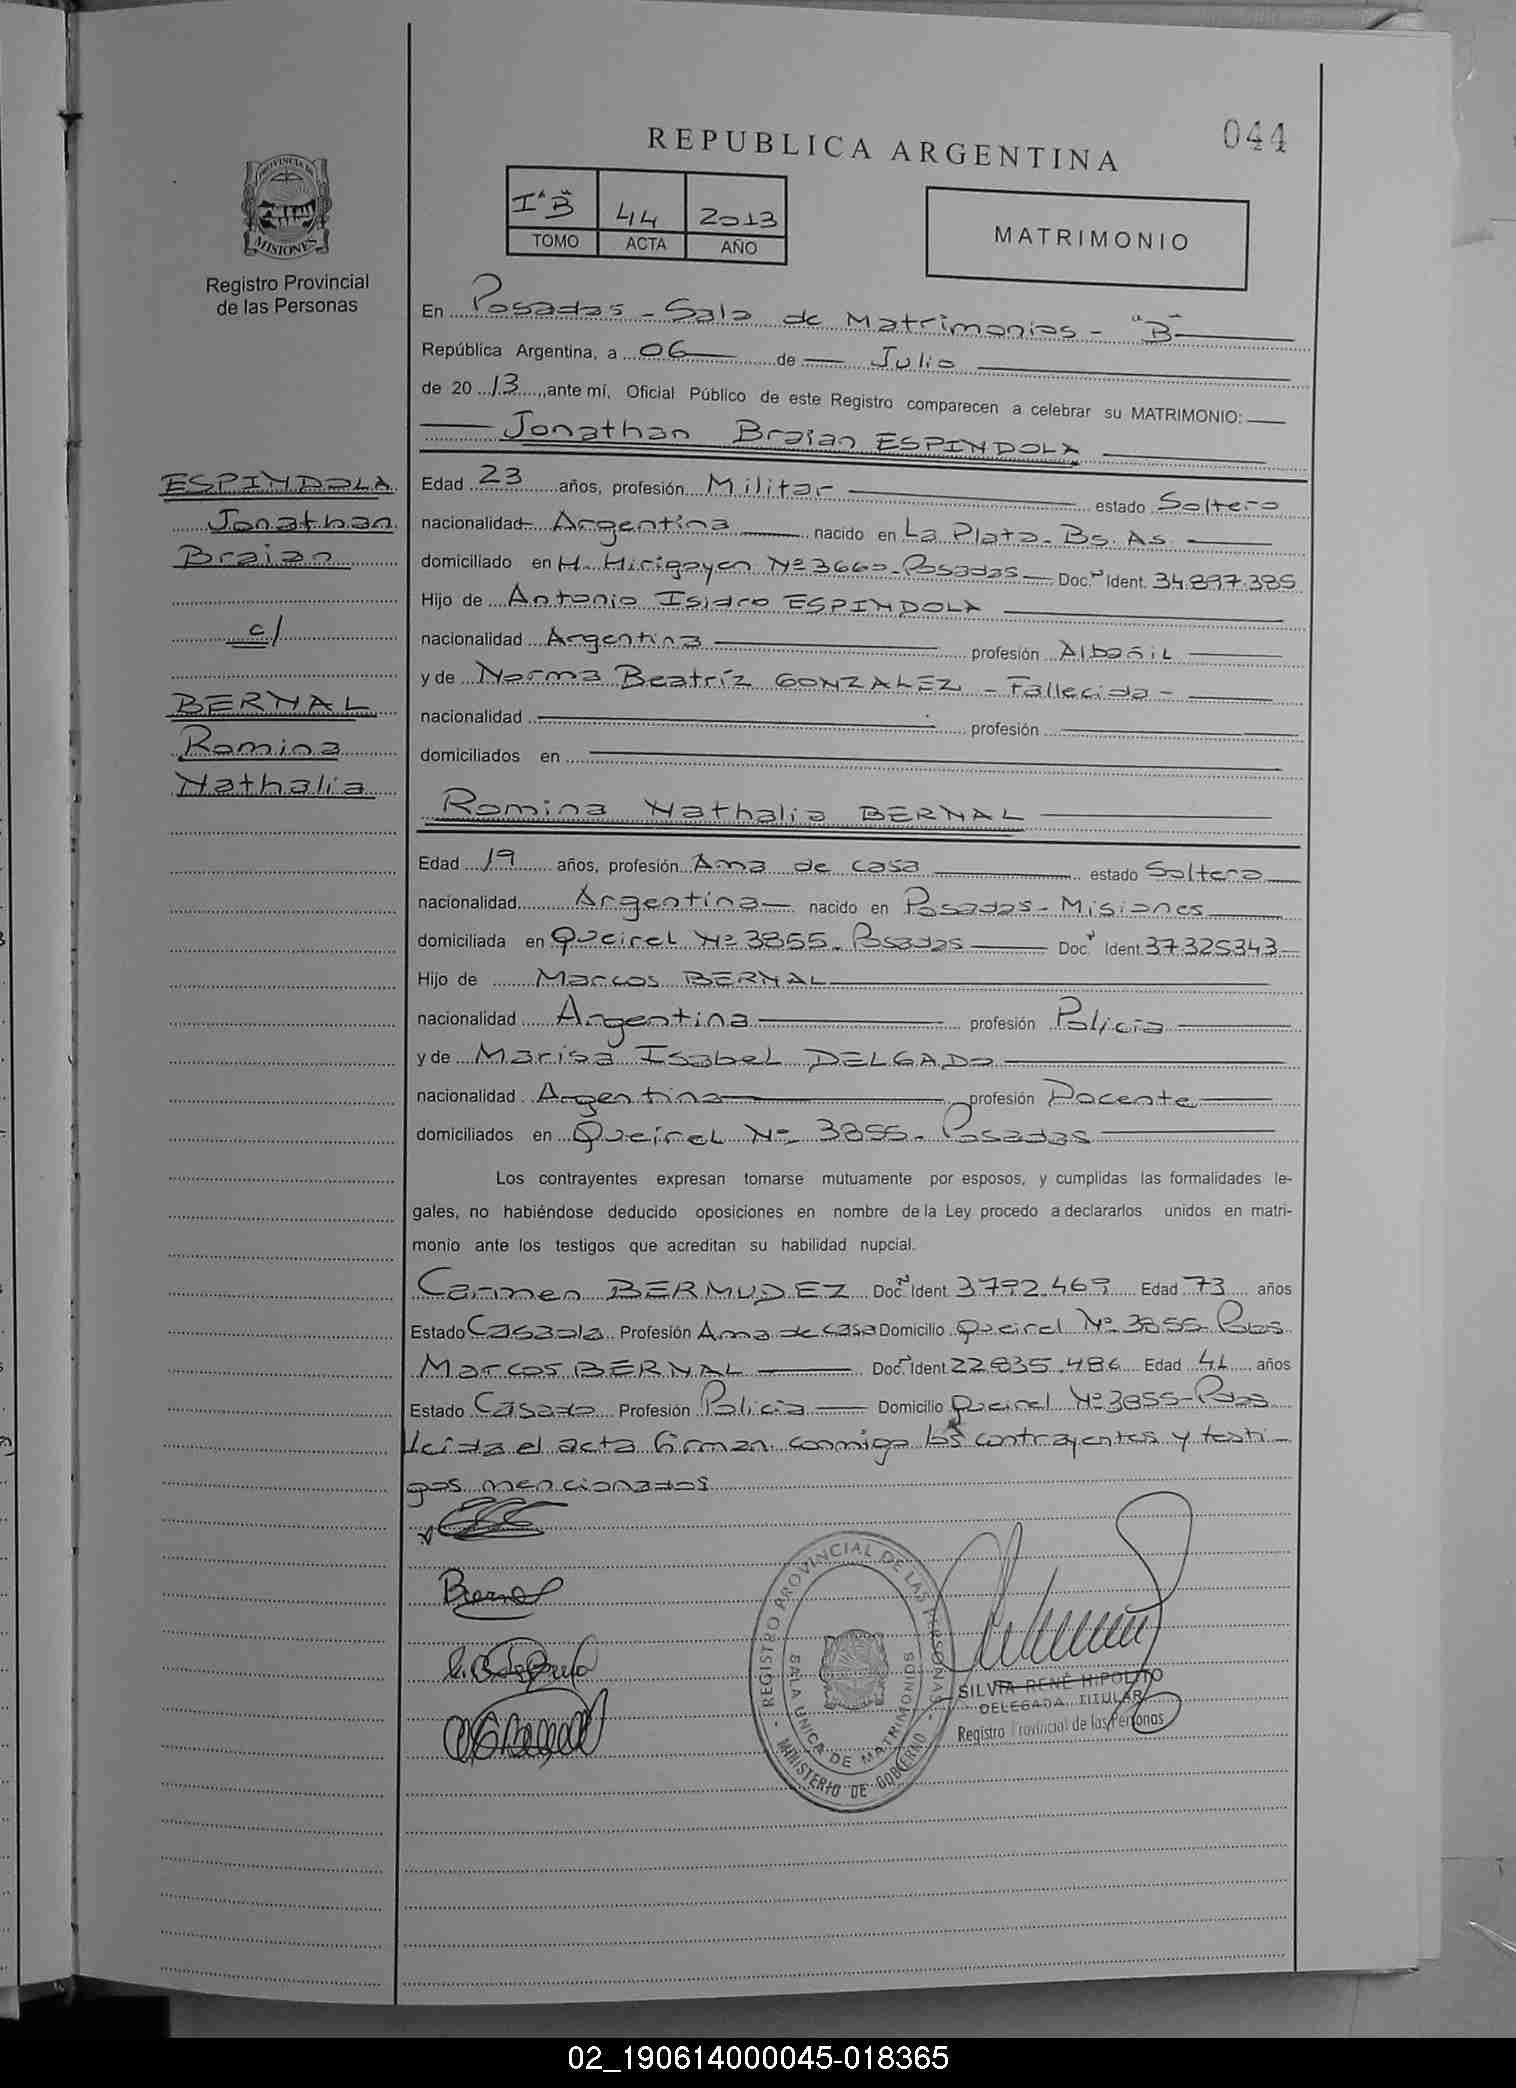 044
REPUBLICA ARGENTINA
PROVINCIA DE
MISIONES
Registro Provincial
de las Personas
I "B" 44 2013
TOMO ACTA AÑO
MATRIMONIO
En Posadas - Sala de Matrimonios - "B"
República Argentina, a 06 de Julio
de 20 13, ante mí, Oficial Público de este Registro comparecen a celebrar su MATRIMONIO:
Jonathan Braian ESPINDOLA
ESPINDOLA
Jonathan
Braian
c/
BERNAL
Romina
Nathalia
Edad 23 años, profesión Militar estado Soltero
nacionalidad Argentina nacido en La Plata - Bs. As.
domiciliado en H. Hirigoyen Nº 3660 - Posadas Doc. N Ident. 34.897.385
Hijo de Antonio Isidro ESPINDOLA
nacionalidad Argentina profesión Albañil
y de Norma Beatríz GONZALEZ - Fallecida -
nacionalidad profesión
domiciliados en
Romina Nathalia BERNAL
Edad 19 años, profesión Ama de casa estado Soltera
nacionalidad Argentina nacido en Posadas - Misiones
domiciliada en Queirel Nº 3855 - Posadas Doc. N Ident. 37.325343
Hijo de Marcos BERNAL
nacionalidad Argentina profesión Policia
y de Marisa Isabel DELGADO
nacionalidad Argentina profesión Docente
domiciliados en Queirel Nº 3855 - Posadas
Los contrayentes expresan tomarse mutuamente por esposos, y cumplidas las formalidades le-
gales, no habiéndose deducido oposiciones en nombre de la Ley procedo a declararlos unidos en matri-
monio ante los testigos que acreditan su habilidad nupcial.
Carmen BERMUDEZ Doc. N Ident. 3792.469 Edad 73 años
Estado Casada Profesión Ama de casa Domicilio Queirel Nº 3855 - Pdas
Marcos BERNAL Doc. N Ident. 22.835.486 Edad 41 años
Estado Casado Profesión Policia Domicilio Queirel Nº 3855 - Pdas
leida el acta firman conmigo los contrayentes y testi-
gos mencionados
Bernal
REGISTRO PROVINCIAL DE LAS PERSONAS
SALA UNICA DE MATRIMONIOS
- MINISTERIO DE GOBIERNO -
SILVIA RENÉ HIPOLITO
DELEGADA TITULAR
Registro Provincial de las Personas
02_190614000045-018365